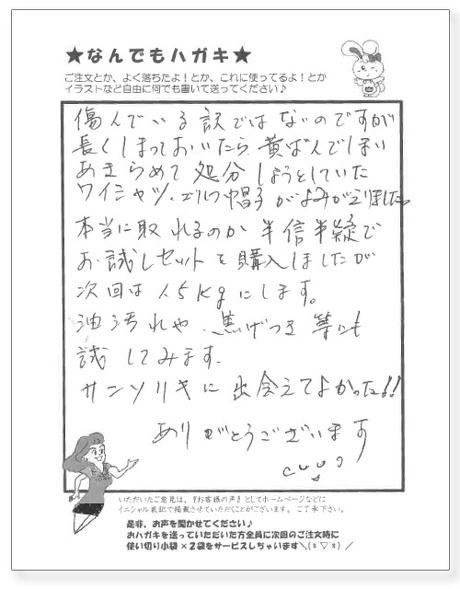 ★なんでもハガキ★
ご注文とか、よく落ちたよ！とか、これに使ってるよ！とか
イラストなど自由に何でも書いて送ってください♪
傷んでいる訳ではないのですが
長くしまっておいたら黄ばんでしまい
あきらめて処分しようとしていた
ワイシャツ、ゴルフ帽子がよみがえりました。
本当に取れるのか半信半疑で
お試しセットを購入しましたが
次回は1.5Kgにします。
油汚れや、焦げつき等にも
試してみます。
サンソリキに出会えてよかった!!
ありがとうございます
いただいたご意見は、『お客様の声』としてホームページなどに
イニシャル表記で掲載させていただくことがございます。ご了承下さい。
是非、お声を聞かせてください♪
おハガキを送っていただいた方全員に次回のご注文時に
使い切り小袋×２袋をサービスしちゃいます＼(*▽*)／